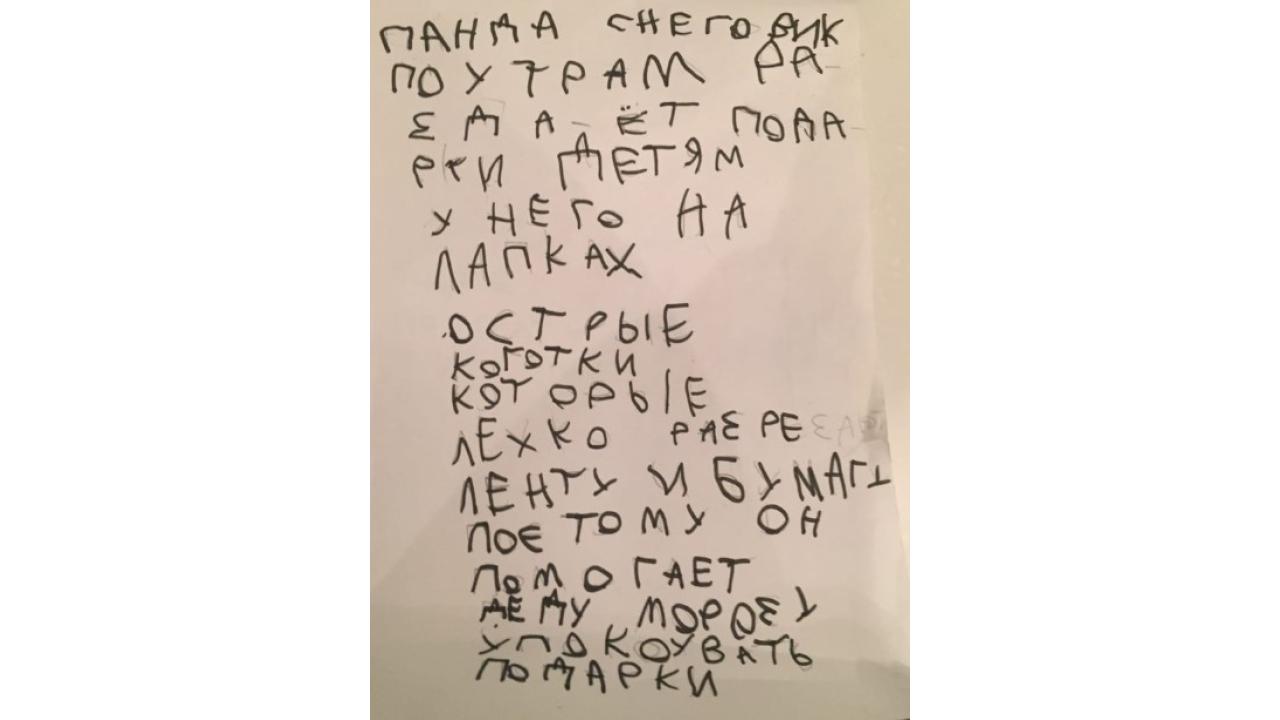 ПАНДА СНЕГОВИК
ПО УТРАМ РА-
ЗДА-ЁТ ПОДА-
РКИ ДЕТЯМ
У НЕГО НА
ЛАПКАХ
ОСТРЫЕ
КОГОТКИ
КОТОРЫЕ
ЛЕХКО
ЛЕНТУ И БУМАГУ
ПОЕТОМУ ОН
ПОМОГАЕТ
ДЕДУ МОРОЗУ
УПОКОУВАТЬ
ПОДАРКИ